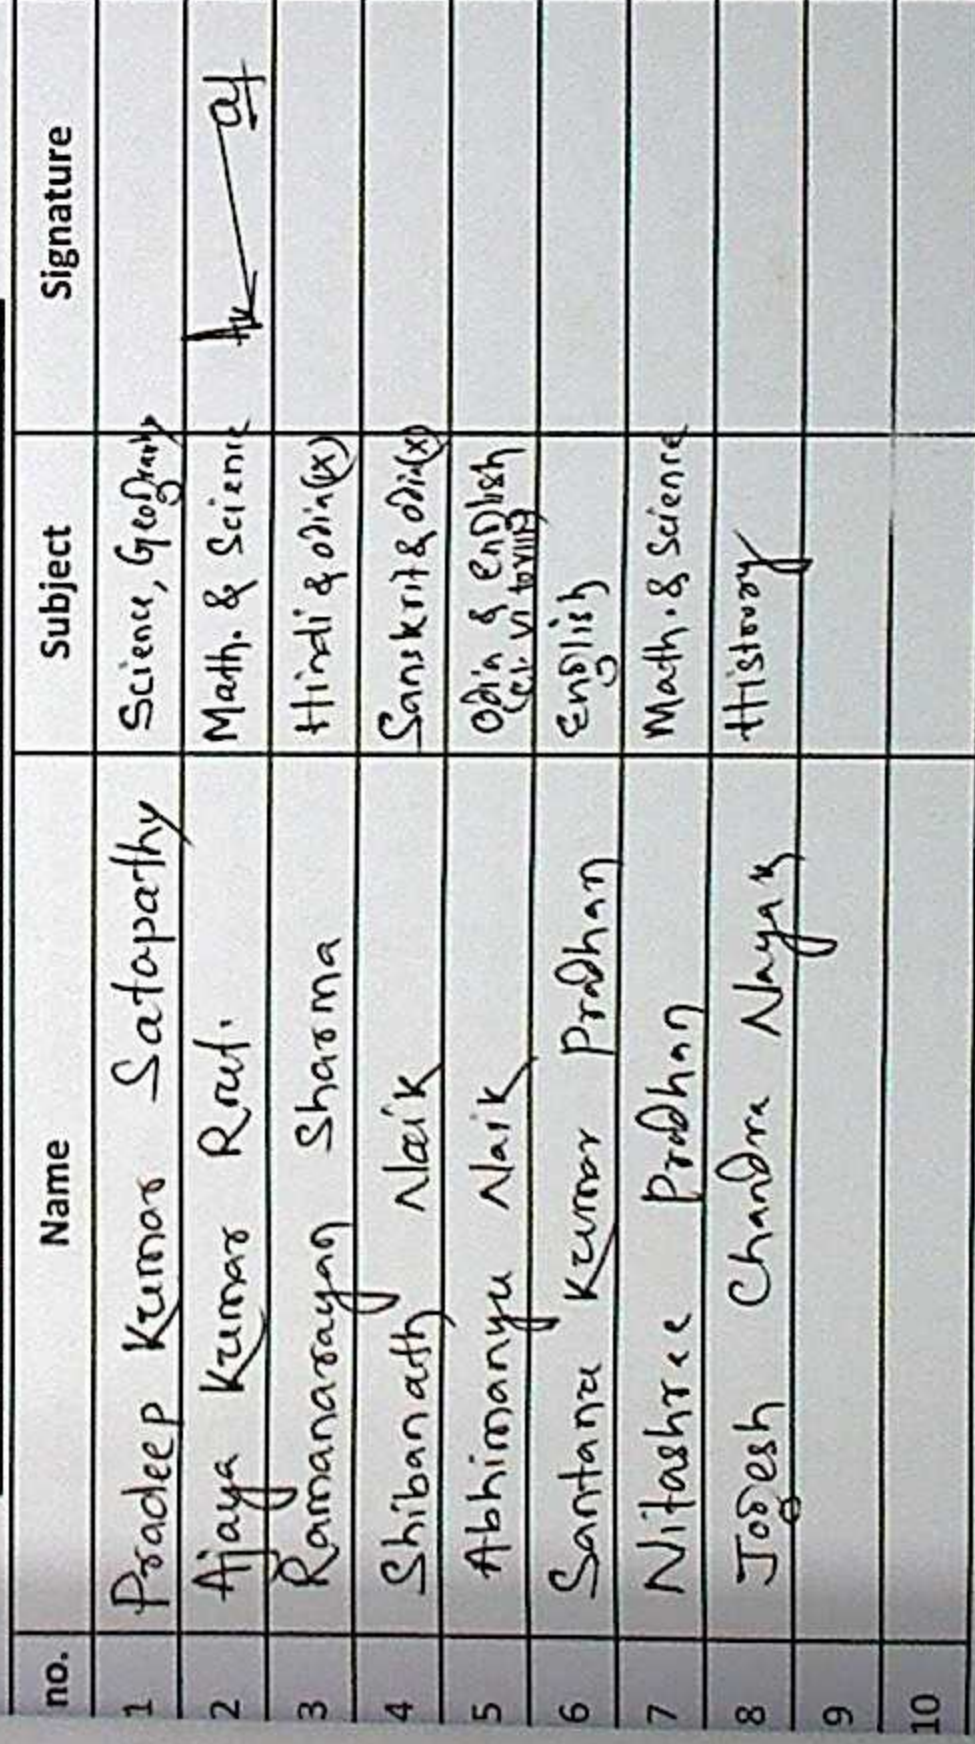 no. Name Subject Signature
1 Pradeep Kumar Satapathy Science, Geography
2 Ajaya Kumar Rout. Math. & Science
3 Ramanarayan Sharma Hindi & Odia(IX)
4 Shibanath Naik Sanskrit & Odia(X)
5 Abhimanyu Naik Odia & English
(cl. VI to VIII)
6 Santanu Kumar Pradhan English
7 Nitashree Pradhan Math. & Science
8 Jogesh Chandra Nayak History
9
10